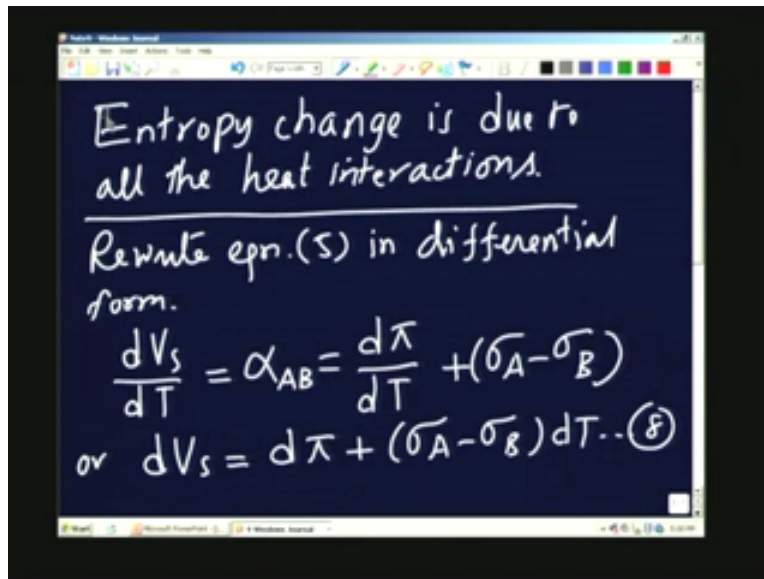 Entropy change is due to
all the heat interactions.
Rewrite eqn.(5) in differential
form.
dVs/dT = αAB = dπ/dT + (σA-σB)
or dVs = dπ + (σA-σB)dT--(8)